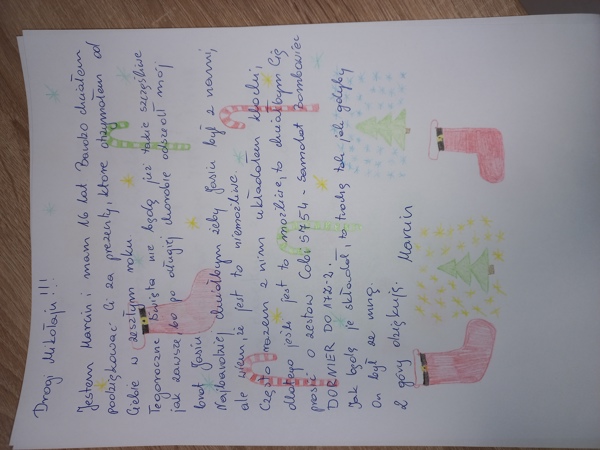 Drogi Mikołaju!!!
Jestem Marcin i mam 16 lat. Bardzo chciałem
podziękować Ci za prezenty, które otrzymałem od
Ciebie w zeszłym roku.
Tegoroczne Święta nie będą już takie szczęśliwe
jak zawsze bo po długiej chorobie odszedł mój
brat Jasiu.
Najbardziej chciałbym żeby Jasiu był z nami,
ale wiem, że jest to niemożliwe.
Często razem z nim układałem klocki,
dlatego jeśli jest to możliwe, to chciałbym Cię
prosić o zestaw Cobi 5754 - Samolot bombowiec
DORNIER DO 17Z-2.
Jak będę je składał, to trochę tak jak gdyby
On był ze mną.
Z góry dziękuję. Marcin